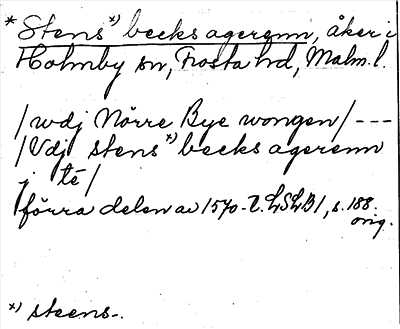 * Stens*) becks agerenn, åker i
Holmby sn, Frosta hd, Malm. l.
/wdj Nörre Bye wongen/---
/Vdj stens*) becks agerenn
j té/
förra delen av 1570-t. LSLB1, s. 188.
orig.
*) steens-.